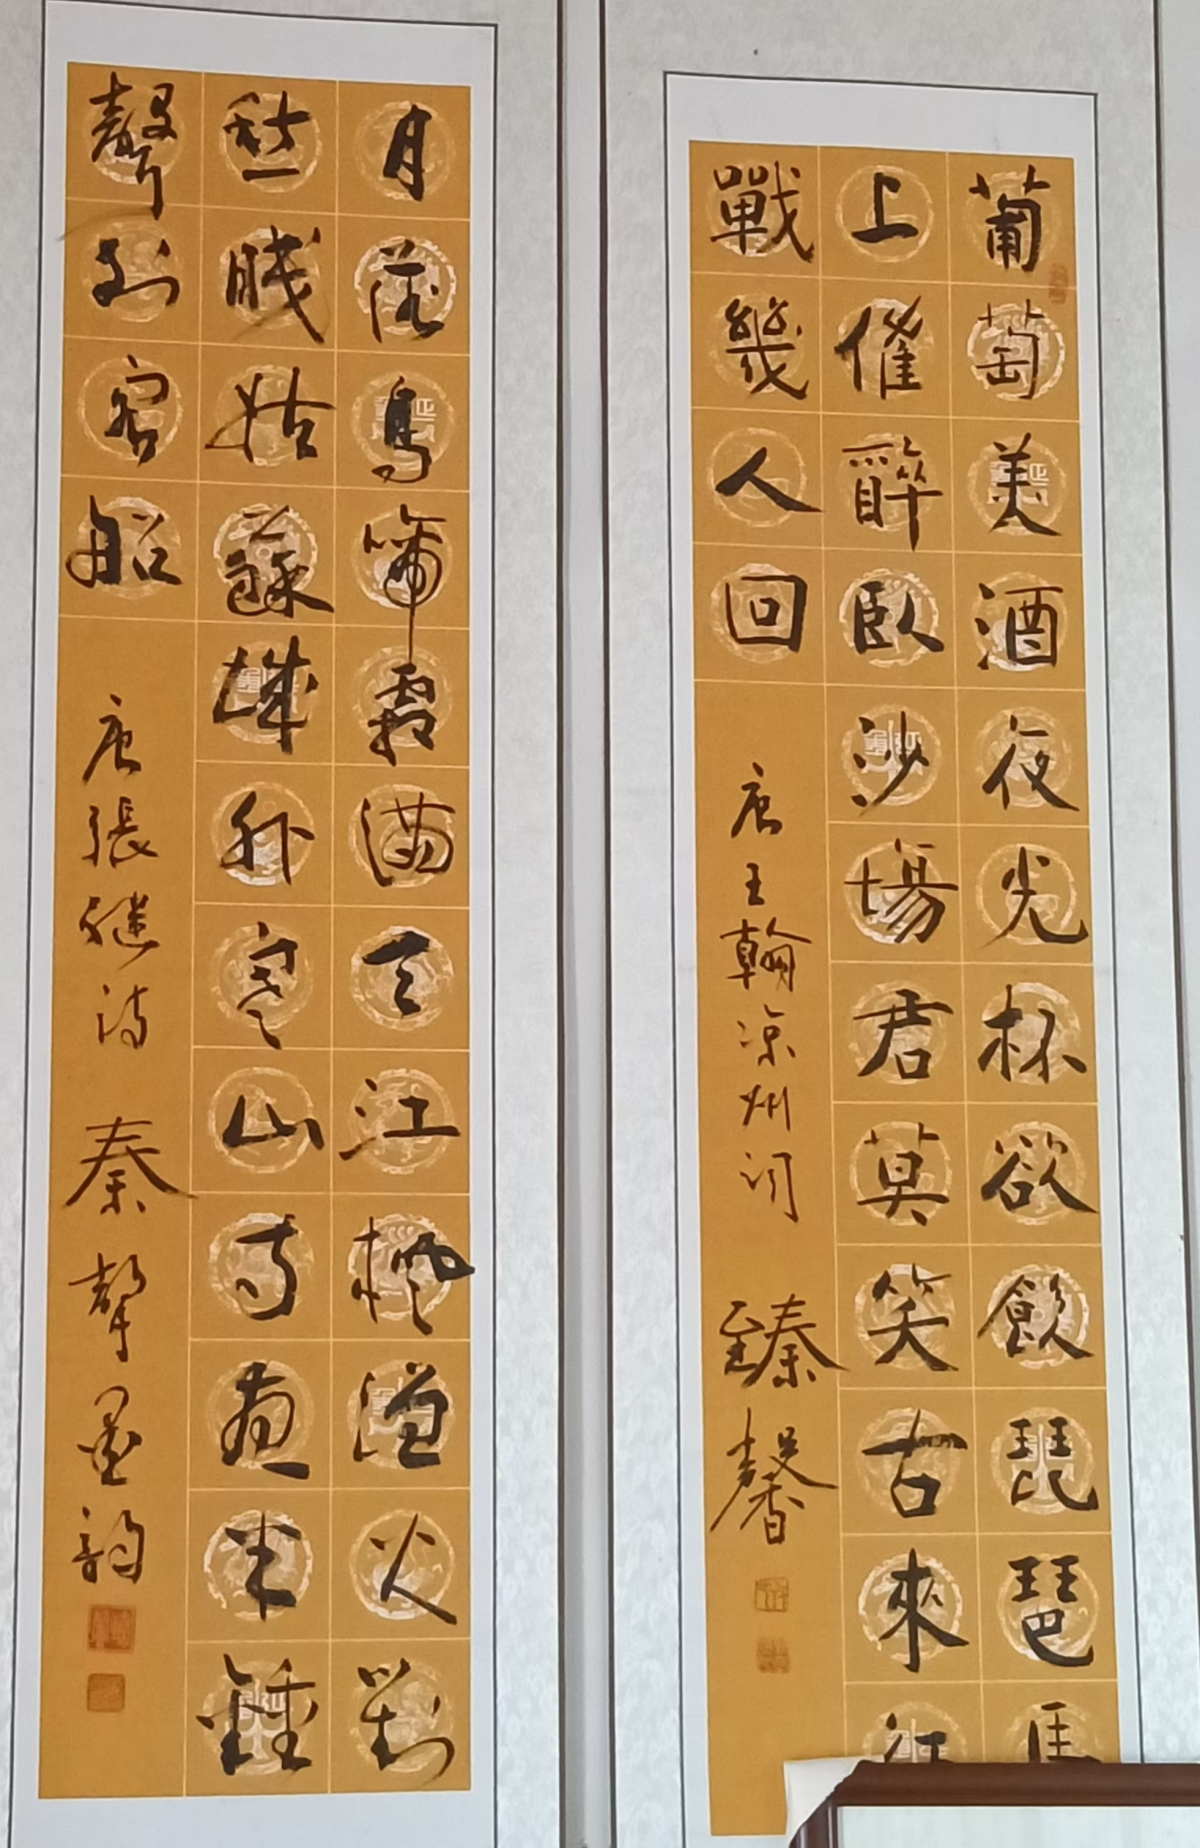 葡萄美酒夜光杯欲飲琵琶馬
上催醉臥沙場君莫笑古來征
戰幾人回 唐王翰凉州詞 臻馨
月落烏啼霜滿天江楓漁火對
愁眠姑蘇城外寒山寺夜半鍾
聲到客船 唐張繼詩 秦聲墨韵